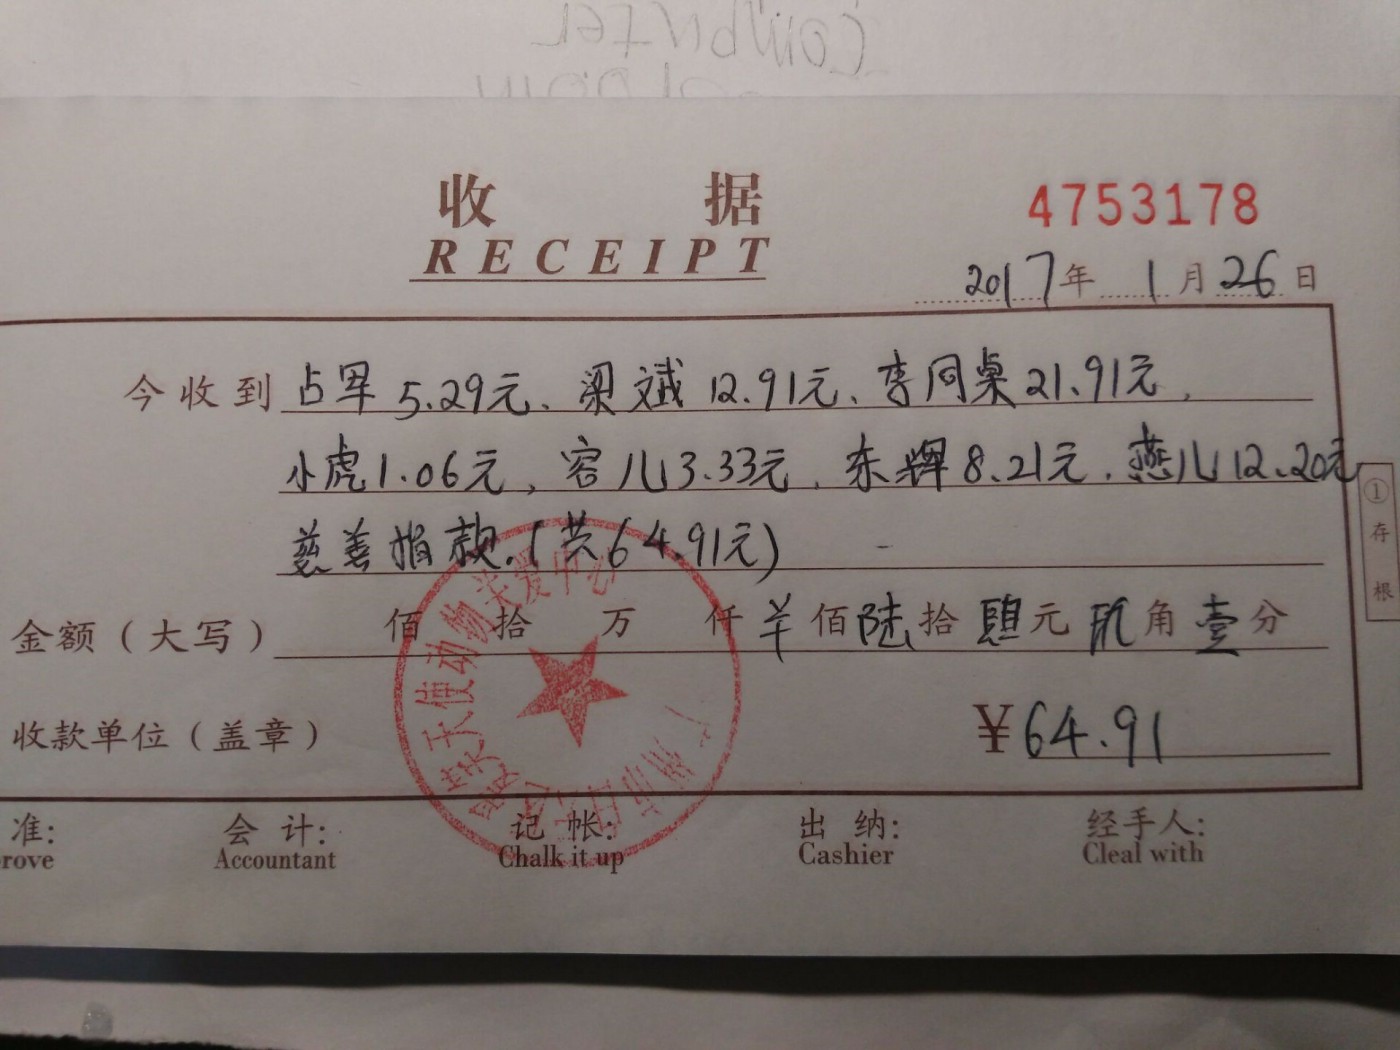 收 据
RECEIPT
4753178
2017年 1月26日
今收到 占军 5.29元、梁斌 12.91元、李同桌 21.91元,
小虎1.06元, 容儿3.33元, 东辉8.21元, 燕儿12.20元
慈善捐款.(共64.91元)
金额(大写) 佰 拾 万 仟 佰陆拾肆元玖角壹分
收款单位(盖章) ¥64.91
准: 会 计: 记 帐: 出 纳: 经手人:
rove Accountant Chalk it up Cashier Cleal with
①存根
天使动物关爱中心
广州市
COMPUTER